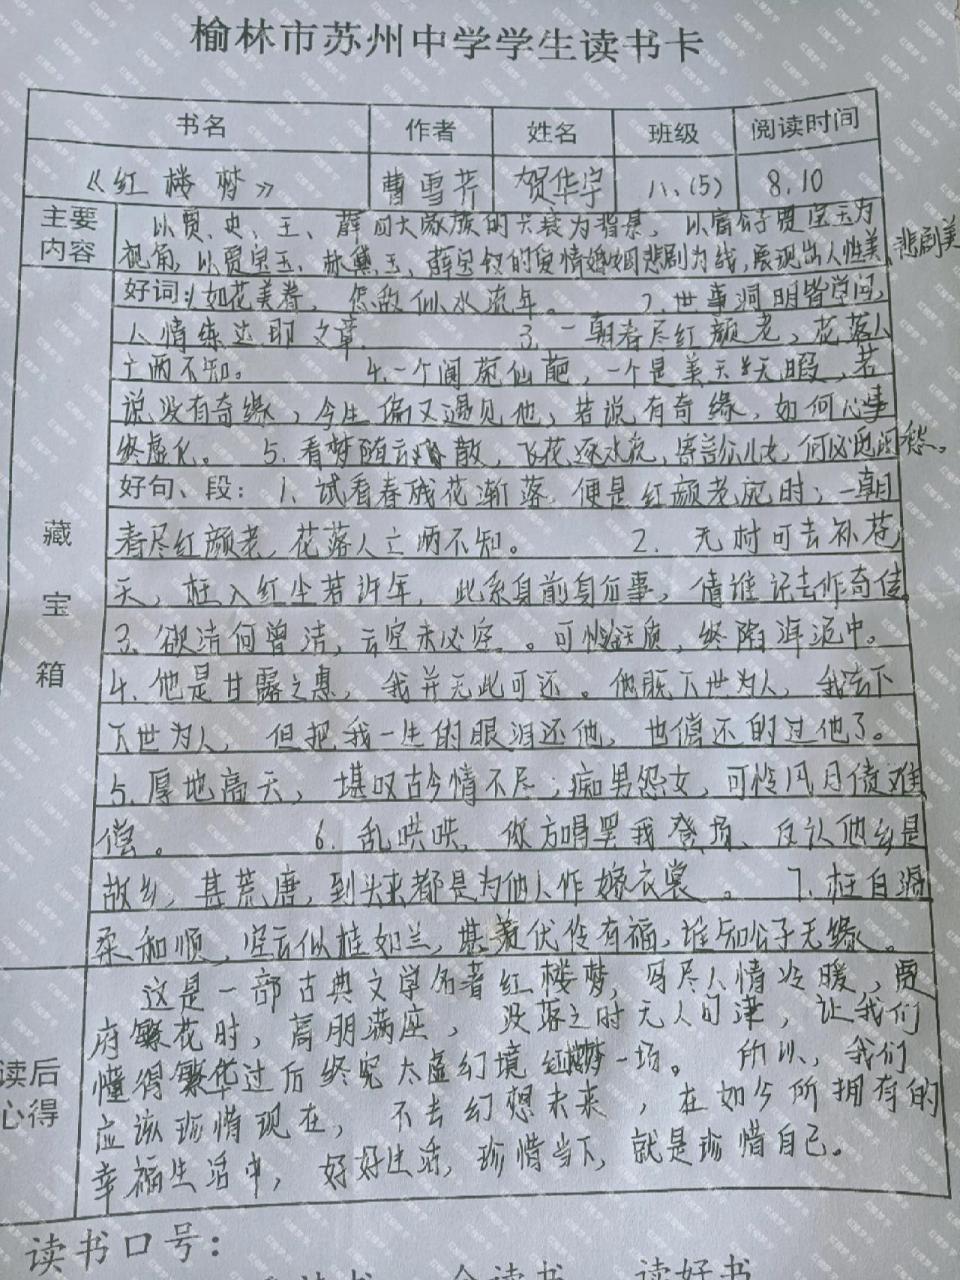 榆林市苏州中学学生读书卡
书名 作者 姓名 班级 阅读时间
《红楼梦》 曹雪芹 贺华宇 八、(5) 8.10
主要内容 以贾、史、王、薛四大家族的兴衰为背景,以富公子贾宝玉为
视角,以贾宝玉、林黛玉、薛宝钗的爱情婚姻悲剧为线,展现出人性美、悲剧美
藏宝箱
好词:1.如花美眷,似水流年。 2.世事洞明皆学问,
人情练达即文章 3.一朝春尽红颜老,花落人
亡两不知。 4.一个阆苑仙葩,一个是美玉无暇,若
说没有奇缘,今生偏又遇见他,若说有奇缘,如何心事
终虚化。 5.看梦随云散,飞花逐水流,寄言众儿女,何必觅闲愁。
好句、段:1.试看春残花渐落 便是红颜老死时;一朝
春尽红颜老,花落人亡两不知。 2.无材可去补苍
天,枉入红尘若许年,此系身前身后事,倩谁记去作奇传
3.欲洁何曾洁,云空未必空。可怜金玉质,终陷淖泥中。
4.他是甘露之惠,我并无此可还。他既下世为人,我去下
下世为人,但把我一生的眼泪还他,也偿还的过他了。
5.厚地高天,堪叹古今情不尽;痴男怨女,可怜风月债难
偿。 6.乱哄哄,你方唱罢我登场、反认他乡是
故乡,甚荒唐,到头来都是为他人作嫁衣裳。 7.枉自温
柔和顺,空云似桂如兰,堪羡优伶有福,谁知公子无缘。
读后心得 这是一部古典文学名著红楼梦,写尽人情冷暖,贾
府繁花时,高朋满座,没落之时无人问津,让我们
懂得繁华过后终究太虚幻境红楼梦一场。 所以,我们
应该珍惜现在,不去幻想未来,在如今所拥有的
幸福生活中,好好生活,珍惜当下,就是珍惜自己。
读书口号:
读书 读好书